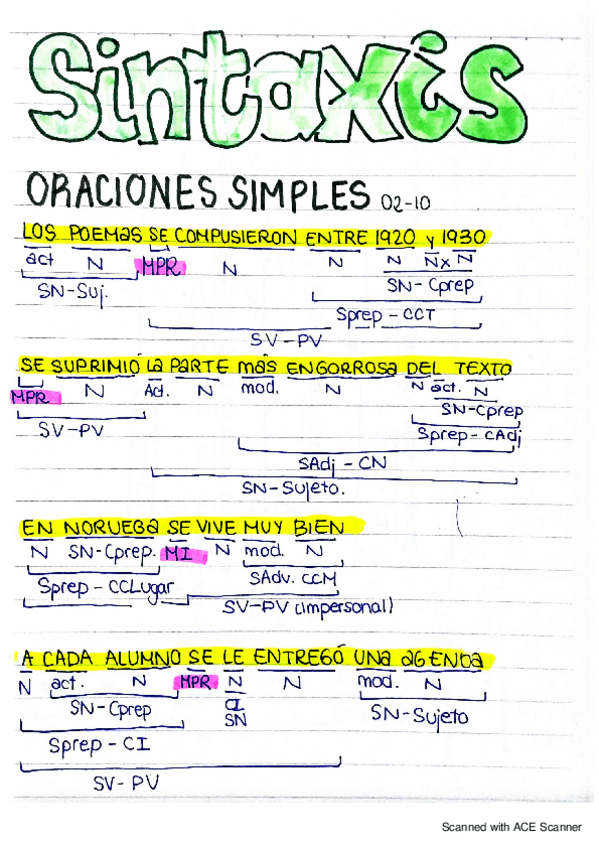 Sintaxis
ORACIONES SIMPLES 02-10
LOS POEMAS SE COMPUSIERON ENTRE 1920 y 1930
act N MPR N N N Nx N
SN-Suj. SN-Cprep
Sprep-CCT
SV-PV
SE SUPRIMIÓ La PARTE más ENGORROSA DEL TEXTO
MPR N Act. N mod. N N act. N
SN-Cprep
SV-PV Sprep-CAdj
SAdj-CN
SN-Sujeto.
EN NORUEGA SE VIVE MUY BIEN
N SN-Cprep. MI N mod. N
Sprep-CCLugar SAdv. CCM
SV-PV (impersonal)
A CADA ALUMNO SE LE ENTREGÓ UNA AGENDA
N act. N MPR N N mod. N
SN-Cprep CI SN-Sujeto
SN
Sprep-CI
SV-PV
Scanned with ACE Scanner